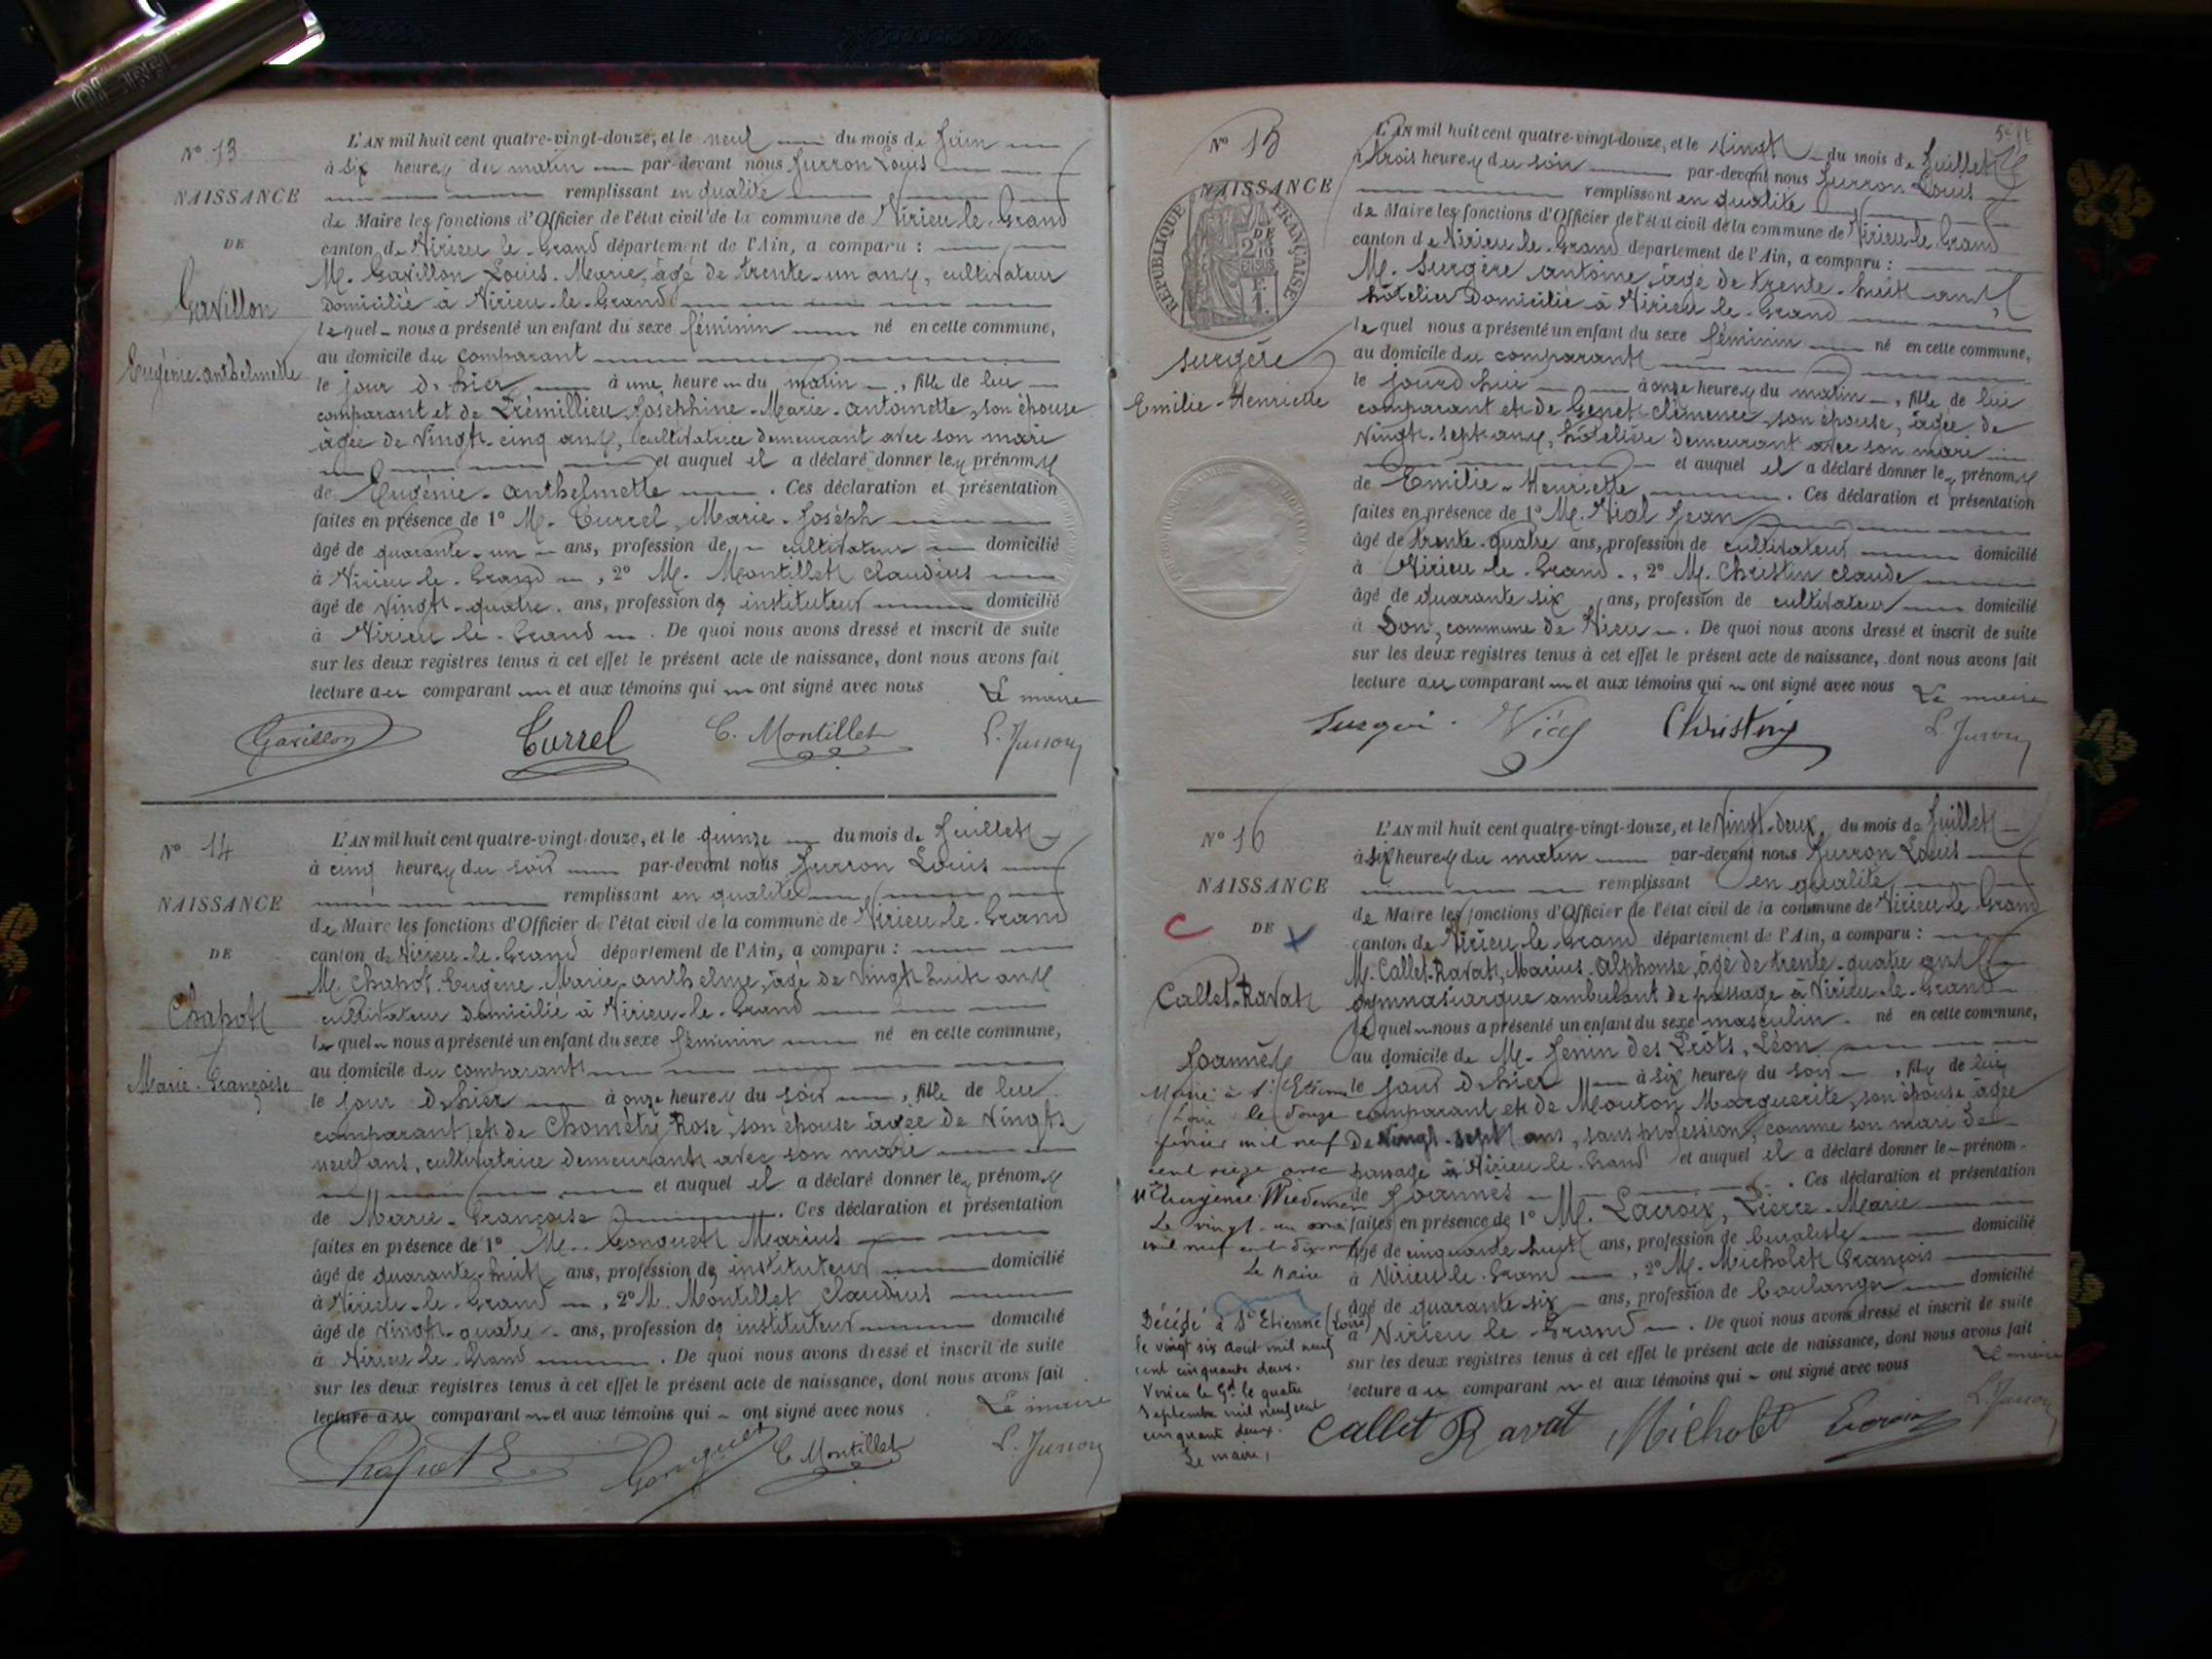 N° 13
NAISSANCE
DE
Gavillon
Eugénie-anthelmette
L'AN mil huit cent quatre-vingt-douze, et le neuf du mois de Juin
à six heures du matin par-devant nous Jurron Louis
remplissant en qualité
de Maire les fonctions d'Officier de l'état civil de la commune de Virieu-le-Grand
canton de Virieu-le-Grand département de l'Ain, a comparu :
M. Gavillon Louis-Marie, âgé de trente-un ans, cultivateur
domicilié à Virieu-le-Grand
lequel nous a présenté un enfant du sexe féminin né en cette commune,
au domicile du comparant
le jour d'hier à une heure du matin, fille de lui
comparant et de Trémillieu Joséphine-Marie-antoinette, son épouse
âgée de vingt-cinq ans, cultivatrice demeurant avec son mari
et auquel il a déclaré donner les prénoms
de Eugénie-anthelmette. Ces déclaration et présentation
faites en présence de 1° M. Turrel, Marie-Joseph
âgé de quarante-un ans, profession de cultivateur domicilié
à Virieu-le-Grand, 2° M. Montillet Claudius
âgé de vingt-quatre ans, profession de instituteur domicilié
à Virieu-le-Grand. De quoi nous avons dressé et inscrit de suite
sur les deux registres tenus à cet effet le présent acte de naissance, dont nous avons fait
lecture au comparant et aux témoins qui ont signé avec nous Le maire
Gavillon Turrel C. Montillet L. Jurron
N° 14
NAISSANCE
DE
Chapot
Marie-Françoise
L'AN mil huit cent quatre-vingt-douze, et le quinze du mois de Juillet
à cinq heures du soir par-devant nous Jurron Louis
remplissant en qualité
de Maire les fonctions d'Officier de l'état civil de la commune de Virieu-le-Grand
canton de Virieu-le-Grand département de l'Ain, a comparu :
M. Chapot Eugène-Marie-anthelme, âgé de vingt huit ans
cultivateur domicilié à Virieu-le-Grand
lequel nous a présenté un enfant du sexe féminin né en cette commune,
au domicile du comparant
le jour d'hier à onze heures du soir, fille de lui
comparant et de Chométy Rose, son épouse âgée de vingt
neuf ans, cultivatrice demeurant avec son mari
et auquel il a déclaré donner les prénoms
de Marie-Françoise. Ces déclaration et présentation
faites en présence de 1° M. Gonguet Marius
âgé de quarante-huit ans, profession de instituteur domicilié
à Virieu-le-Grand, 2° M. Montillet Claudius
âgé de vingt-quatre ans, profession de instituteur domicilié
à Virieu-le-Grand. De quoi nous avons dressé et inscrit de suite
sur les deux registres tenus à cet effet le présent acte de naissance, dont nous avons fait
lecture au comparant et aux témoins qui ont signé avec nous Le maire
Chapot E Gonguet C. Montillet L. Jurron
N° 15
NAISSANCE
RÉPUBLIQUE FRANÇAISE
Surgère
Emilie-Henriette
L'AN mil huit cent quatre-vingt-douze, et le vingt du mois de Juillet
à trois heures du soir par-devant nous Jurron Louis
remplissant en qualité
de Maire les fonctions d'Officier de l'état civil de la commune de Virieu-le-Grand
canton de Virieu-le-Grand département de l'Ain, a comparu :
M. Surgère antoine, âgé de trente-huit ans
hôtelier domicilié à Virieu-le-Grand
lequel nous a présenté un enfant du sexe féminin né en cette commune,
au domicile du comparant
le jourd'hui à onze heures du matin, fille de lui
comparant et de Genet Clémence, son épouse, âgée de
vingt-sept ans, hôtelière demeurant avec son mari
et auquel il a déclaré donner les prénoms
de Emilie-Henriette. Ces déclaration et présentation
faites en présence de 1° M. Vial Jean
âgé de trente-quatre ans, profession de cultivateur domicilié
à Virieu-le-Grand, 2° M. Christin Claude
âgé de quarante six ans, profession de cultivateur domicilié
à Don, commune de Vieu. De quoi nous avons dressé et inscrit de suite
sur les deux registres tenus à cet effet le présent acte de naissance, dont nous avons fait
lecture au comparant et aux témoins qui ont signé avec nous Le maire
Christin L. Jurron
N° 16
NAISSANCE
C DE
Callet-Ravat
Joannès
Marié à St Etienne
Loire le douze
février mil neuf
cent seize avec
Le vingt-un
mil neuf cent
Le Maire
Décédé à St Etienne (Loire)
le vingt six août mil neuf
cent cinquante deux.
Virieu le Gd le quatre
Septembre mil neuf cent
cinquante deux.
Le maire,
L'AN mil huit cent quatre-vingt-douze, et le vingt-deux du mois de Juillet
à six heures du matin par-devant nous Jurron Louis
remplissant en qualité
de Maire les fonctions d'Officier de l'état civil de la commune de Virieu-le-Grand
canton de Virieu-le-Grand département de l'Ain, a comparu :
M. Callet-Ravat, Marius-Alphonse, âgé de trente-quatre ans
gymnasiarque ambulant de passage à Virieu-le-Grand
lequel nous a présenté un enfant du sexe masculin né en cette commune,
au domicile de M. Jenin des Prôts, Léon
le jour d'hier à six heures du soir, fils de lui
comparant et de Mouton Marguerite, son épouse âgée
de vingt-sept ans, sans profession, comme son mari de
passage à Virieu-le-Grand et auquel il a déclaré donner le prénom
de Joannès. Ces déclaration et présentation
faites en présence de 1° M. Lacroix, Pierre-Marie
âgé de cinquante huit ans, profession de buraliste domicilié
à Virieu-le-Grand, 2° M. Micholet François
âgé de quarante-six ans, profession de boulanger domicilié
à Virieu-le-Grand. De quoi nous avons dressé et inscrit de suite
sur les deux registres tenus à cet effet le présent acte de naissance, dont nous avons fait
lecture au comparant et aux témoins qui ont signé avec nous Le maire
Callet Ravat Micholet L. Jurron